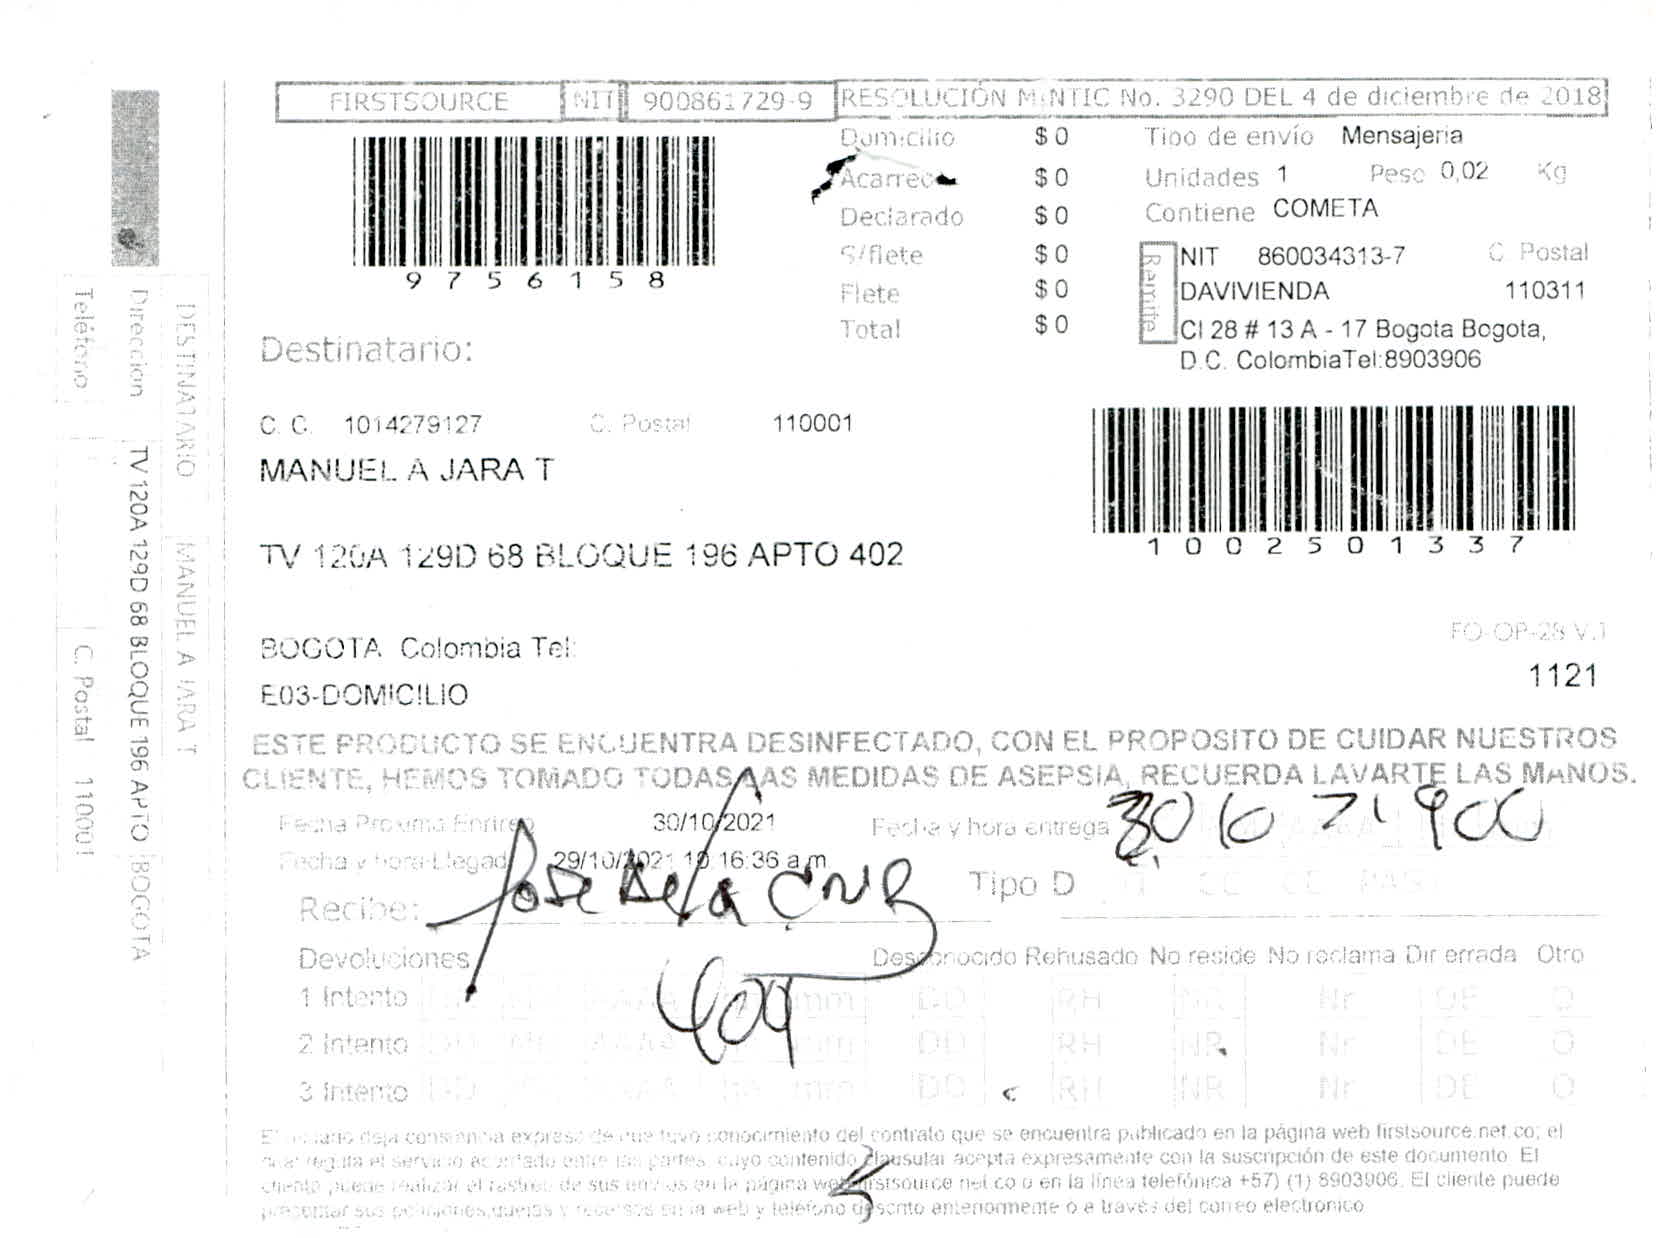 FIRSTSOURCE NIT 900861729-9 RESOLUCIÓN MINTIC No. 3290 DEL 4 de diciembre de 2018
9756158
Domicilio $ 0
Acarreo $ 0
Declarado $ 0
S/flete $ 0
Flete $ 0
Total $ 0
Tipo de envío Mensajeria
Unidades 1 Peso 0,02 Kg
Contiene COMETA
Remite
NIT 860034313-7 C Postal
DAVIVIENDA 110311
Cl 28 # 13 A - 17 Bogota Bogota,
D.C. ColombiaTel:8903906
Destinatario:
C. C. 1014279127 C. Postal 110001
MANUEL A JARA T
1002501337
TV 120A 129D 68 BLOQUE 196 APTO 402
BOGOTA Colombia Tel:
E03-DOMICILIO
FO-OP-28 V.1
1121
ESTE PRODUCTO SE ENCUENTRA DESINFECTADO, CON EL PROPOSITO DE CUIDAR NUESTROS
CLIENTE, HEMOS TOMADO TODAS LAS MEDIDAS DE ASEPSIA, RECUERDA LAVARTE LAS MANOS.
Fecha Proxima Enrireo 30/10/2021 Fecha y hora entrega 30 10 21 900
Fecha y hora Llegad 29/10/2021 10 16:36 a.m.
Tipo D CC CE PAS
Recibe: Jose De la Cruz
404
Devoluciones Desconocido Rehusado No reside No reclama Dir errada Otro
1 Intento DD MM AAAA hh mm DD RH NR Nr DE O
2 Intento DD MM AAAA hh mm DD RH NR Nr DE O
3 Intento DD MM AAAA hh mm DD RH NR Nr DE O
El usuario deja constancia expresa de que tuvo conocimiento del contrato que se encuentra publicado en la página web firstsource.net.co; el
cual regula el servicio acordado entre las partes, cuyo contenido clausular acepta expresamente con la suscripción de este documento. El
cliente puede realizar el rastreo de sus envíos en la página web firstsource.net.co o en la línea telefónica +57) (1) 8903906. El cliente puede
presentar sus peticiones, quejas y recursos en la web y teléfono descrito anteriormente o a través del correo electronico
DESTINATARIO MANUEL A JARA T
Direccion TV 120A 129D 68 BLOQUE 196 APTO BOGOTA
Teléfono C. Postal 110001